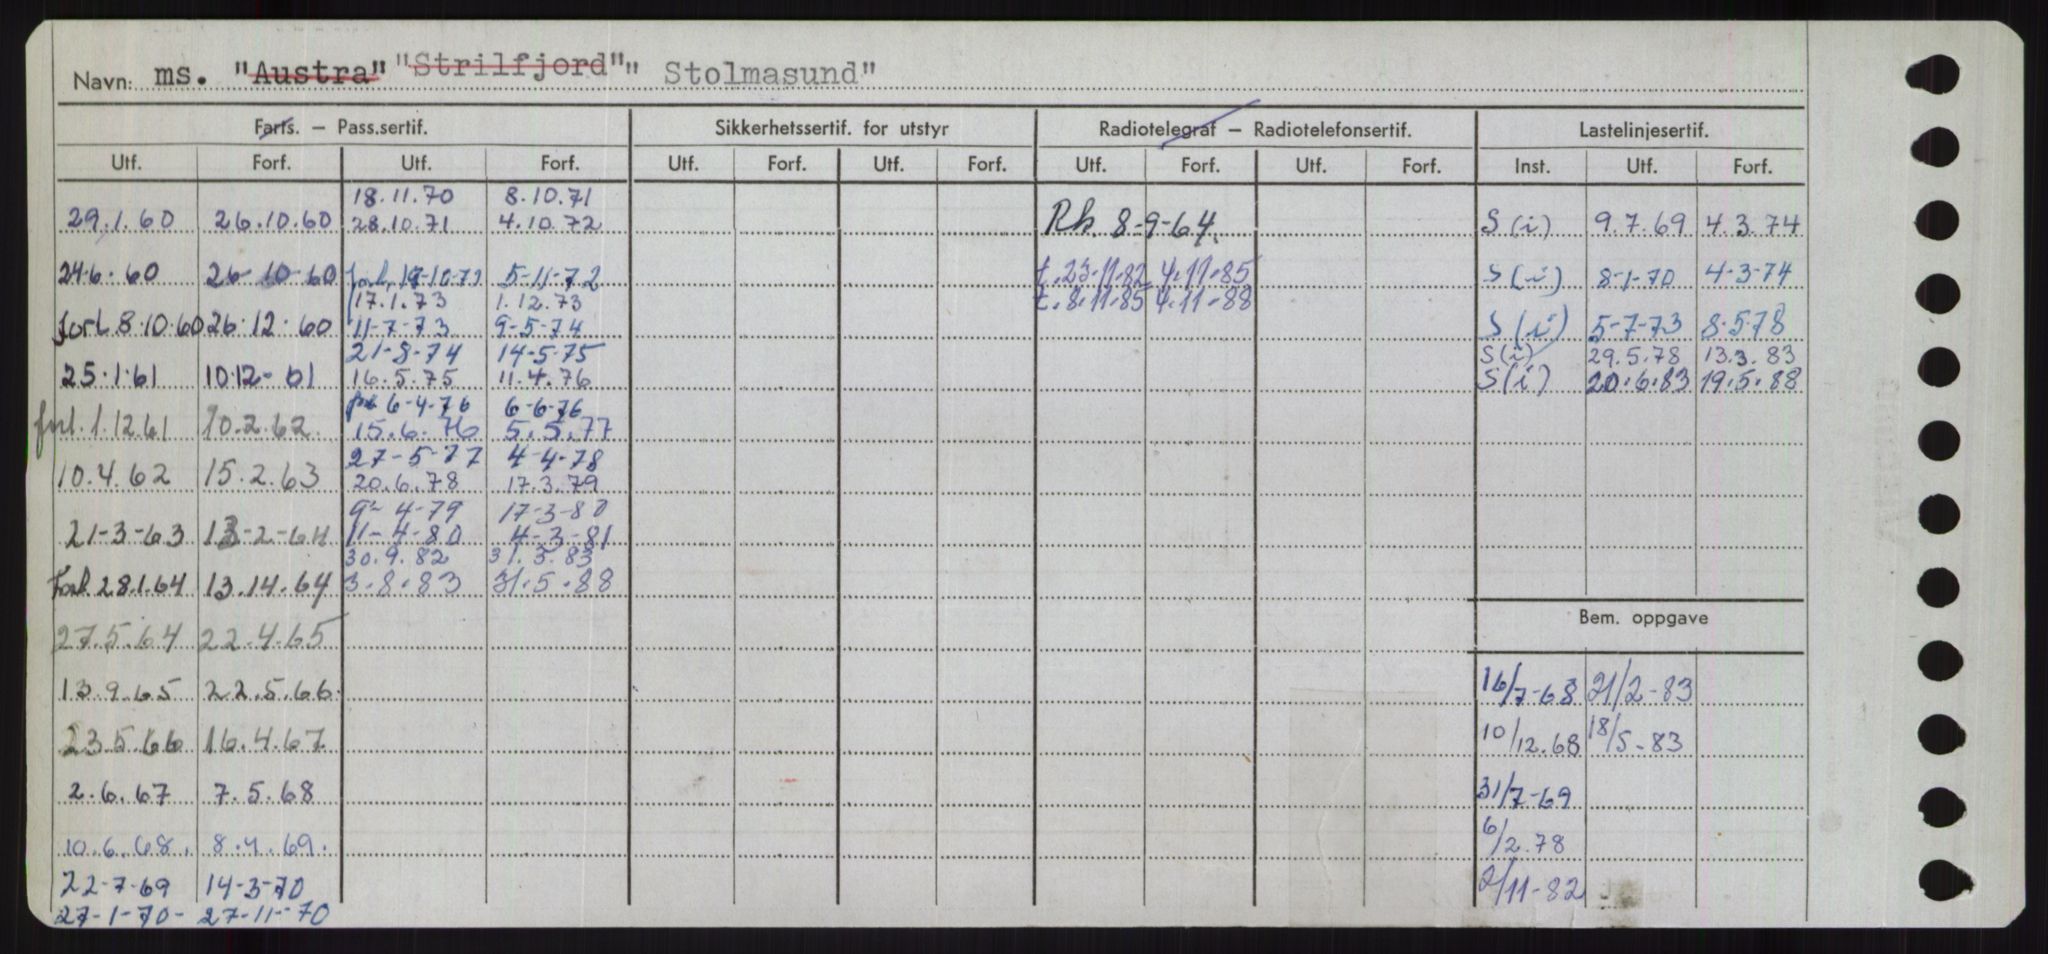 Navn: ms. "Austra" "Strilfjord" " Stolmasund"
Farts. – Pass.sertif. Sikkerhetssertif. for utstyr Radiotelegraf – Radiotelefonsertif. Lastelinjesertif.
Utf. Forf. Utf. Forf. Utf. Forf. Utf. Forf. Utf. Forf. Utf. Forf. Inst. Utf. Forf.
18.11.70 8.10.71
29.1.60 26.10.60 28.10.71 4.10.72 Rk. 8-9-64. S(i) 9.7.69 4.3.74
24.6.60 26-10-60 forl. 5-11-72 t.23.11.82 4.11.85 S(i) 8-1-70 4-3-74
17.1.73 1.12.73 t.8.11.85 4.11.88
forl. 8.10.60 26.12.60 11-7-73 9-5-74 S(i) 5-7-73 8.5.78
21-8-74 14-5-75 S(i) 29.5.78 13.3.83
25.1.61 10.12-61 16.5.75 11.4.76 S(i) 20.6.83 19.5.88
6-4-76 6-6-76
forl. 1.12.61 10.2.62. 15.6.76 5.5.77
27-5-77 4-4-78
10.4.62 15.2.63 20.6.78 17.3.79
9-4-79 17-3-80
21-3-63 13-2-64 11-4-80 4-3-81
30.9.82 31.3.83
Forl. 28.1.64 13.14.64 3.8.83 31.5.88
Bem. oppgave
27.5.64 22.4.65
13.9.65 22.5.66. 16/7-68 21/2-83
23.5.66 16.4.67 10/12.68 18/5-83
2.6.67 7.5.68 31/7-69
10.6.68. 8.4.69. 6/2.78
22-7-69 14-3-70 2/11-82
27-1-70- 27-11-70